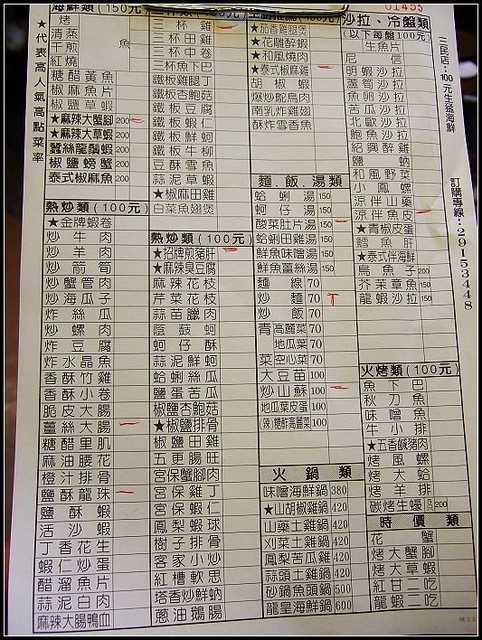 01455
三民店:100元生猛海鮮
訂購專線:29153448
★代表高人氣高點菜率
海鮮類(150元)
烤
清蒸
干煎
紅燒
魚
糖醋黃魚
椒麻魚片
椒鹽草蝦
★麻辣大蟹腳 200
★麻辣大草蝦 200
蠶絲龍鬚蝦 200
椒鹽螃蟹 200
泰式椒麻魚 200
熱炒類(100元)
★金牌蝦卷
炒牛肉
炒羊肉
炒箭筍
炒蟹管肉
炒海瓜子
炸絲瓜
炒螺肉
炸豆腐
炸水晶魚
香酥竹雞
香酥小卷
脆皮大腸
薑絲大腸
糖醋里肌
麻油腰花
橙汁排骨
鹽酥龍珠
鹽酥蝦
活沙蝦
丁香花生
蝦仁炒蛋
醋溜魚片
蒜泥白肉
麻辣大腸鴨血
三杯雞
三杯田雞
三杯中卷
三杯魚下巴
鐵板雞腿丁
鐵板杏鮑菇
鐵板豆腐
鐵板蝦仁
鐵板鮮蚵
鐵板牛柳
豆酥雪魚
蒜泥草蝦
★椒麻田雞
白菜魚翅煲
熱炒類(100元)
★招牌煎豬肝
★麻辣臭豆腐
麻辣花枝
芹菜花枝
蒜苗臘肉
蔭豉蚵
蚵仔酥
蒜泥鮮蚵
蛤蜊絲瓜
鹽蛋苦瓜
椒鹽杏鮑菇
★椒鹽排骨
椒鹽田雞
五更腸旺
宮保蟹腳肉
宮保雞丁
宮保蝦仁
鳳梨蝦球
樹子排骨
客家小炒
紅糟軟思
塔香炒鮮蚋
蔥油鵝腸
★茄香肥腸煲
★花雕醉蝦
★和風燒肉
★泰式椒麻雞
胡椒蝦
爆炒鴕鳥肉
南乳炸雞翅
酥炸雪香魚
麵.飯.湯類
蛤蜊湯 150
蚵仔湯 150
酸菜肚片湯 150
蛤蜊田雞湯 150
鮮魚味噌湯 150
鮮魚薑絲湯 150
麵線 70
炒麵 70
炒飯 70
青高麗菜 70
地瓜菜 70
菜空心菜 70
大豆苗 100
炒山蘇 100
地瓜菜皮蛋 100
火鍋類
味噌海鮮鍋 380
★山胡椒雞鍋 420
山藥土雞鍋 420
刈菜土雞鍋 420
鳳梨苦瓜雞 420
蒜頭土雞鍋 420
砂鍋魚頭鍋 500
龍皇海鮮鍋 600
沙拉、冷盤類
(以下每盤100元)
生魚片
尼信
明蝦沙拉
蘆筍沙拉
魚卵沙拉
苦瓜沙拉
北歐沙拉
鮑魚沙拉
紹興醉雞
鹽蚋
和風野菜
小鳳螺
涼伴山藥
涼伴魚皮
★青椒皮蛋
鱈魚肝
★泰式伴海鮮
烏魚子 200
芥茉章魚 150
龍蝦沙拉 150
火烤類(100元)
魚下巴
秋刀魚
味噌魚
牛小排
★五香鹹豬肉
烤風螺
烤大蛤
烤羊排
碳烤生蠔 200
時價類
花蟹
烤大蟹腳
烤大草蝦
紅甘二吃
龍蝦二吃